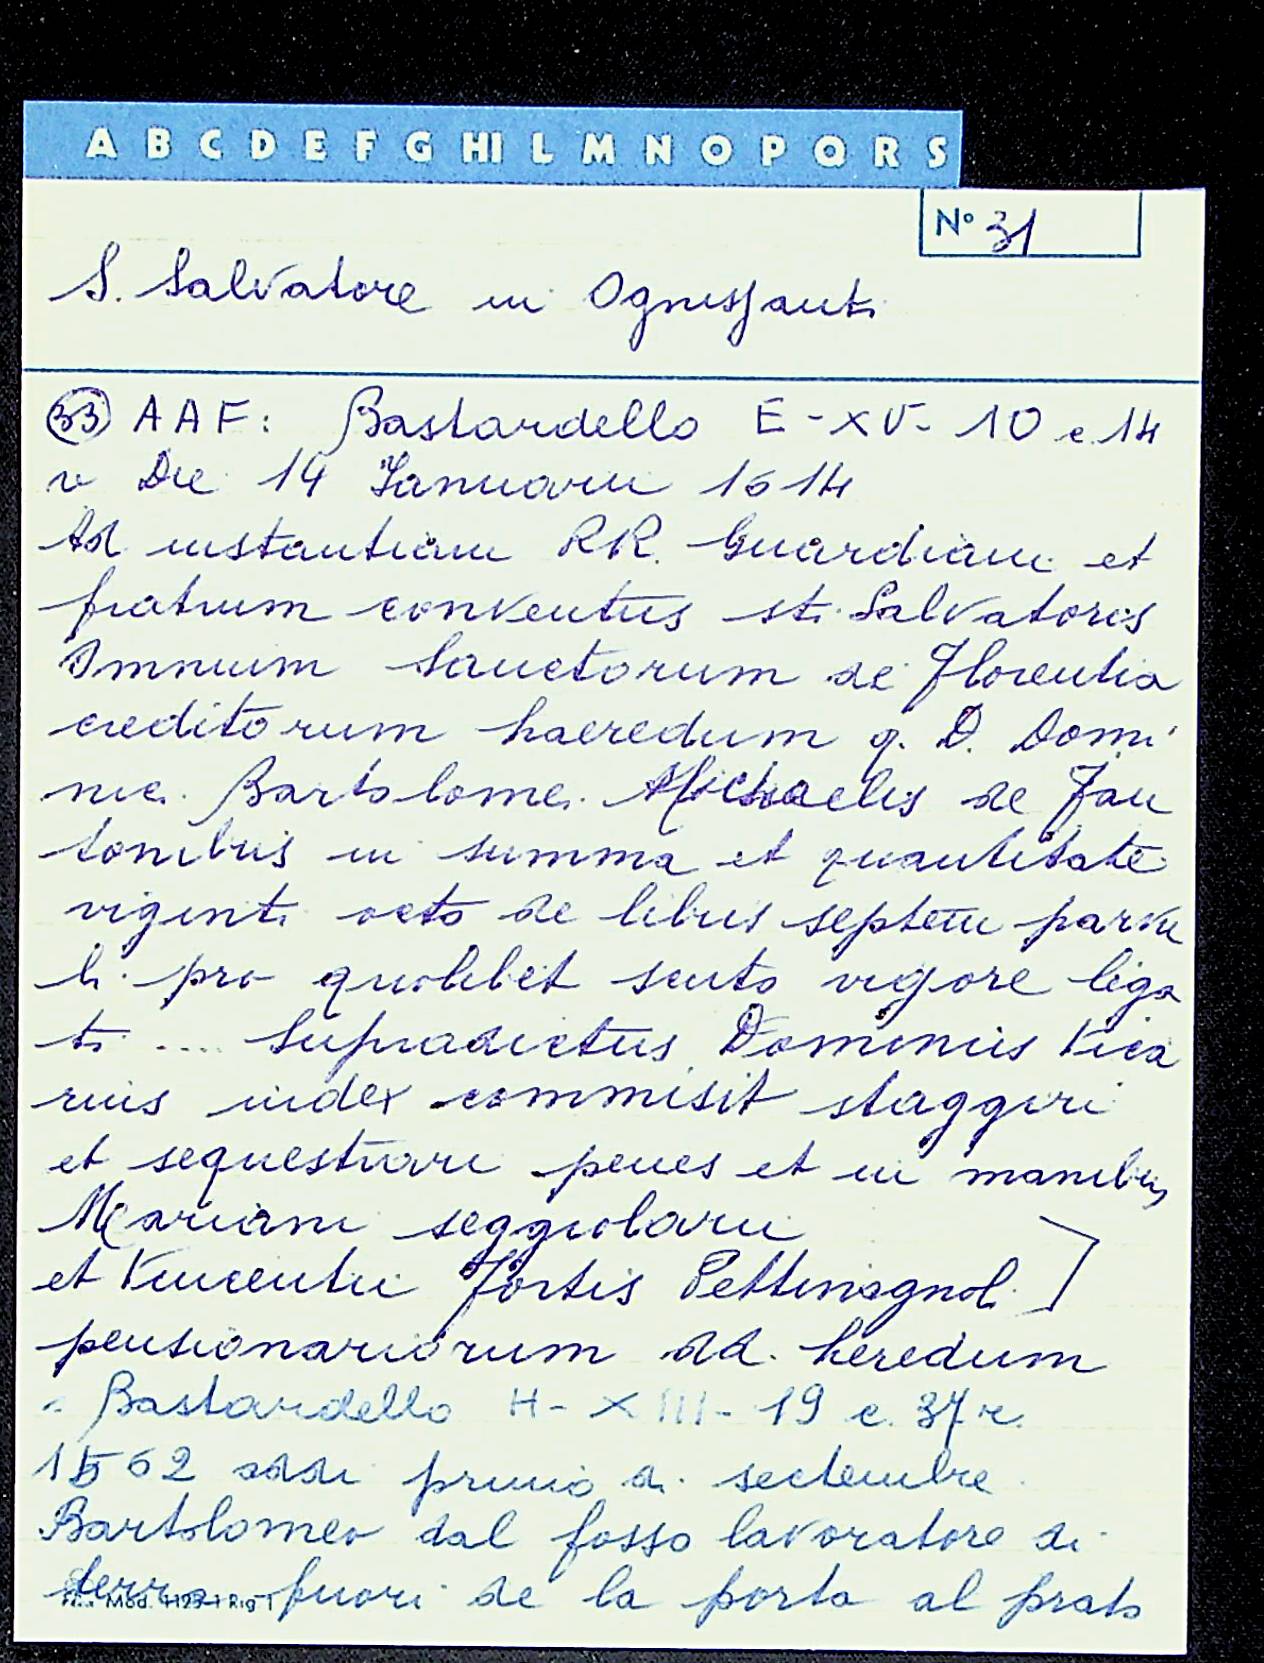 A B C D E F G HI L M N O P Q R S
N° 31
S. Salvatore in Ognissanti
33 AAF: Bastardello E-XV-10 c.14
v Die 14 Januarii 1614
Ad instantiam RR. Guardiani et
fratrum conventus sti. Salvatoris
Omnium Sanctorum de Florentia
creditorum haeredum q. D. Domi
nici Bartolomei Michaelis de Fan
tonibus in summa et quantitate
viginti octo de libris septem parvu
li pro quolibet scuto vigore lega
ti .... Supradictus Dominus Vica
rius iudex commisit staggiri
et sequestrari penes et in manibus
Mariani seggiolarii
et Vincentii Fortis Pettinagnoli ]
pensionariorum dd. heredum
" Bastardello H-XIII-19 c. 37r.
1562 addi primo di settembre
Bartolomeo dal fosso lavoratore di
terra fuori de la porta al prato
Mod. 1125-1 Rig 1